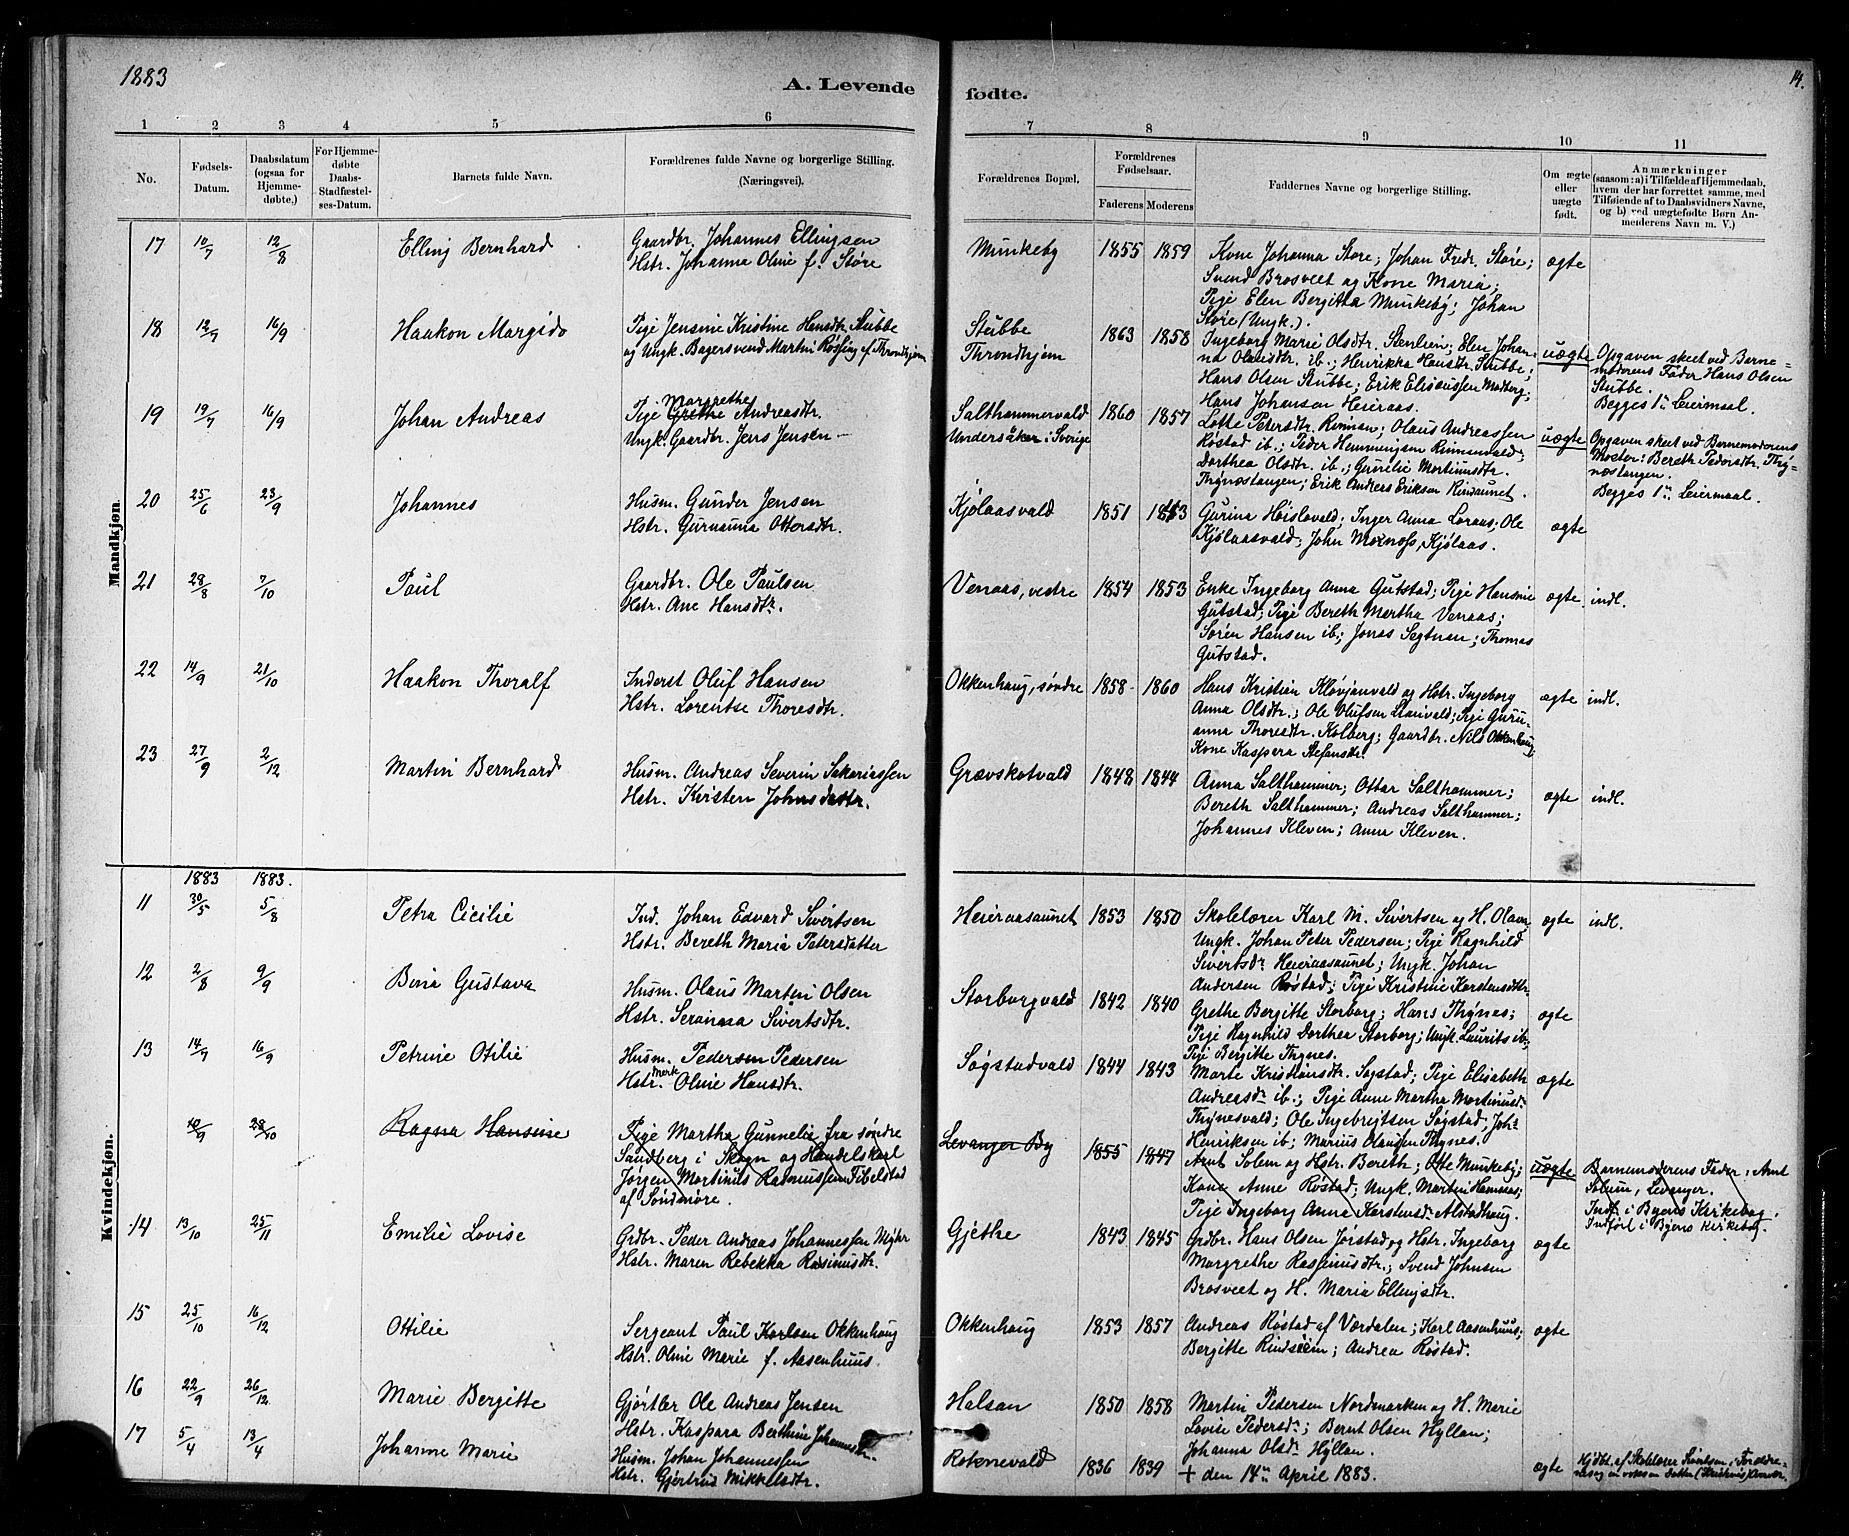 1883
A. Levende
fødte.
14.
1 2 3 4 5 6 7 8 9 10 11
No.
Fødsels-Datum.
Daabsdatum (ogsaa for Hjemmedøbte,)
For Hjemmedøbte Daabs-Stadfæstelses-Datum.
Barnets fulde Navn.
Forældrenes fulde Navne og borgerlige Stilling.
(Næringsvei).
Forældrenes Bopæl.
Forældrenes Fødselsaar.
Faderens Moderens
Faddernes Navne og borgerlige Stilling.
Om ægte eller uægte født.
Anmærkninger
(saasom: a) i Tilfælde af Hjemmedaab,
hvem der har forrettet samme, med
Tilføiende af to Daabsvidners Navne,
og b) ved uægtefødte Børn An-
mederens Navn m. V.)
Mandkjøn.
17 10/7 12/8 Elling Bernhard
Gaardbr. Johannes Ellingsen
Hstr. Johanna Oline f. Støre
Munkeby 1855 1859
Kone Johanna Støre; Johan Fredr. Støre;
Svend Brosveet og Kone Maria;
Pige Elen Bergitta Munkeby; Johan
Støre (Ungk.).
ægte
18 12/7 16/9 Haakon Margido
Pige Jensine Kristine Hansdtr. Stubbe
og Ungk. Bagersvend Martin Røsing af Throndhjem
Stubbe
Throndhjem
1863 1858
Ingeborg Marie Olsdtr. Stenlien; Elen Johan-
na Olausdtr. ib.; Henrikka Hansdtr. Stubbe;
Hans Olsen Stubbe; Erik Eliseussen Modberg;
Hans Johansen Heieraas.
uægte
Opgaven skeet ved Barne-
moderens Fader Hans Olsen
Stubbe.
Begges 1ste Leiermaal.
19 19/7 16/9 Johan Andreas
Margrethe
Pige Grethe Andreasdtr.
Ungk. Gaardbr. Jens Jensen
Salthammervald
Undersåker i Sverige
1860 1857
Lotte Petersdtr. Rinnan; Olaus Andreassen
Røstad ib.; Peder Hemmingsen Rinnanvald;
Dorthea Olsdtr. ib.; Gurilie Martinusdtr.
Thynæstangen; Erik Anders Eriksen Rindsaunet.
uægte
Opgaven skeet ved Barnemoderens
Moster: Bereth Pedersdtr. Thy-
næstangen.
Begges 1ste Leiermaal.
20 25/6 23/9 Johannes
Husm. Gunder Jensen
Hstr. Gurianna Ottersdtr.
Kjølaasvald 1851 1853
Gurina Høislovald; Inger Anna Loraas; Ole
Kjølaasvald; John Moxnoss, Kjølaas.
ægte
21 28/8 7/10 Paul
Gaardbr. Ole Paulsen
Hstr. Ane Hansdtr.
Venaas, vestre 1854 1853
Enke Ingeborg Anna Gutstad; Pige Hansine
Gutstad; Pige Bereth Martha Venaas;
Søren Hansen ib.; Jonas Segtnan; Thomas
Gutstad.
ægte. indl.
22 14/9 21/10 Haakon Thoralf
Inderst Oluf Hansen
Hstr. Lorentse Thoresdtr.
Okkenhaug, søndre 1858 1860
Hans Kristian Kløvjanvald og Hstr. Ingeborg
Anna Olsdtr.; Ole Olufsen Lianvald; Pige Guru-
anna Thoresdtr. Kolberg; Gaardbr. Nils Okkenhaug;
Kone Kaspera Stefansdtr.
ægte indl.
23 27/9 2/12 Martin Bernhard
Husm. Andreas Severin Sakariassen
Hstr. Kirsten Johnsdattr.
Grævskotvald 1848 1844
Anna Salthammer; Ottar Salthammer;
Bereth Salthammer; Andreas Salthammer;
Johannes Kleven; Anna Kleven.
ægte indl.
Kvindekjøn.
1883 1883.
11 30/5 5/8 Petra Cicilie
Ind. Johan Edvard Sivertsen
Hstr. Bereth Maria Petersdatter
Heieraasaunet 1853 1850
Skolelærer Karl M. Sivertsen og H. Olava
Ungk. Johan Peter Pedersen; Pige Ragnhild
Sivertsdr. Heieraasaunet; Ungk. Johan
Andersen Røstad; Pige Kristine Karstensdtr.
ægte indl.
12 2/8 9/9 Beria Gustava
Husm. Olaus Martin Olsen
Hstr. Serianna Sivertsdtr.
Storborgvald 1842 1840
Grethe Bergitte Storborg; Hans Thynes;
Pige Ragnhild Dorthea Storborg; Ungk. Laurits ib;
Pige Bergitte Thynes.
ægte
13 14/7 16/9 Petrine Otilie
Husm. Pedersen Pedersen
Hstr. Merk Oline Hansdtr.
Søgstadvald 1844 1843
Marte Kristiansdtr. Søgstad; Pige Elisabeth
Andreasdr. ib.; Pige Anne Martha Martinusdr.
Thynesvald; Ole Ingebrigtsen Søgstad; Joh.
Henriksen ib; Marius Olaussen Thynes.
ægte
10/9 28/10 Ragna Hansine
Pige Martha Gunnelie fra søndre
Sandberg i Skogn og Handelskarl
Jørgen Martinus Rasmussen Fibelstad
af Søndmøre.
Levanger By 1855 1847
Arnt Solem og Hstr. Bereth; Otte Munkeby;
Kone Anne Røstad; Ungk. Martin Hamnes;
Pige Ingeborg Anna Karstensdr. Alstadhaug.
uægte
Barnemoderens Fader: Arnt
Solum, Levanger.
Indf. i Byens Kirkebog.
Indførl i Byens Kirkebog.
14 13/10 25/11 Emilie Lovise
Grdbr. Peder Andreas Johannessen Myhr
Hstr. Maren Rebekka Rasmusdtr.
Gjethe 1843 1845
Grdbr. Hans Olsen Jørstad og Hstr. Ingeborg
Margrethe Rasmusdtr.; Svend Johnsen
Brosveet og H. Maria Ellingsdtr.
ægte
15 25/10 16/12 Ottilie
Sergeant Paul Karlsen Okkenhaug
Hstr. Oline Marie f. Aasenhuus.
Okkenhaug 1853 1857
Andreas Røstad af Værdalen; Karl Aasenhuus;
Bergitte Rindseim; Andrea Røstad.
ægte
16 22/9 26/12 Marie Bergitte
Gjørtler Ole Andreas Jensen
Hstr. Kaspara Berthine Johannesdtr.
Halsan 1850 1858
Martin Pedersen Nordmarken og H. Marie
Lovise Pedersdr.; Bernt Olsen Hyllan;
Johanna Olsdr. Hyllan.
17 5/4 13/4 Johanne Marie
Husm. Johan Johannessen
Hstr. Gjertrud Mikkelsdtr.
Roknevald 1836 1839
+ den 14de April 1883.
ægte
Hjdbt. af Skolelærer Sivertsen; Foræld-